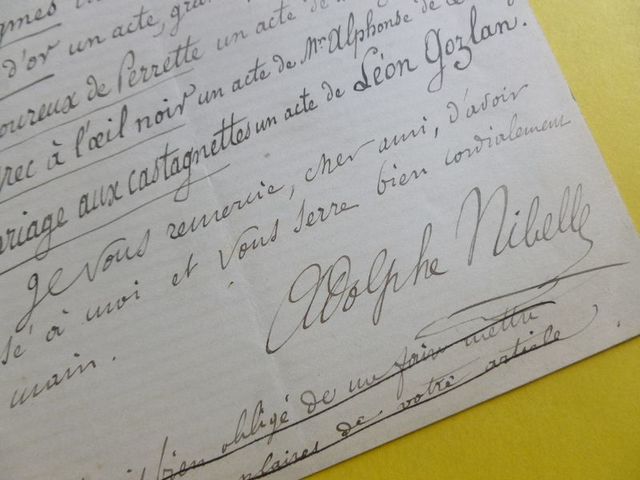 d'or un acte,
oureux de Perrette un acte de
rec à l'œil noir un acte de Mr Alphonse de
riage aux castagnettes un acte de Léon Gozlan.
Je vous remercie, cher ami, d'avoir
sé à moi et vous serre bien cordialement
main.
Adolphe Nibelle
bien obligé de me faire mettre
plaires de votre article